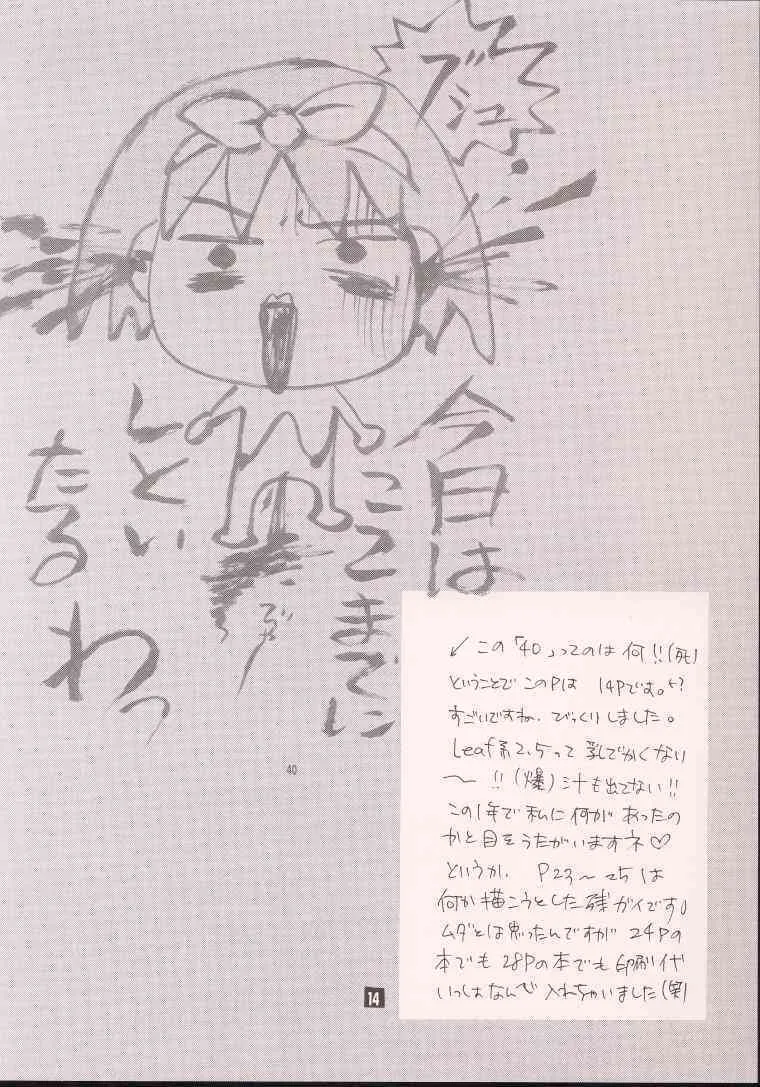 ブシュ
今日は
ここまでに
しとい
たるわっ
40
14
↙この「40」ってのは何!!(死)
ということでこのPは 14Pです。
すごいですね、びっくりしました。
Leaf系2.5って 乳でかくない
〜!!(爆)汁も出てない!!
この1年で私に何があったの
かと目をうたがいますネ♡
というか、P23〜25は
何か描こうとした残ガイです。
ムダとは思ったんですが 24Pの
本でも 28Pの本でも印刷代
いっしょなんで 入れちゃいました(笑)